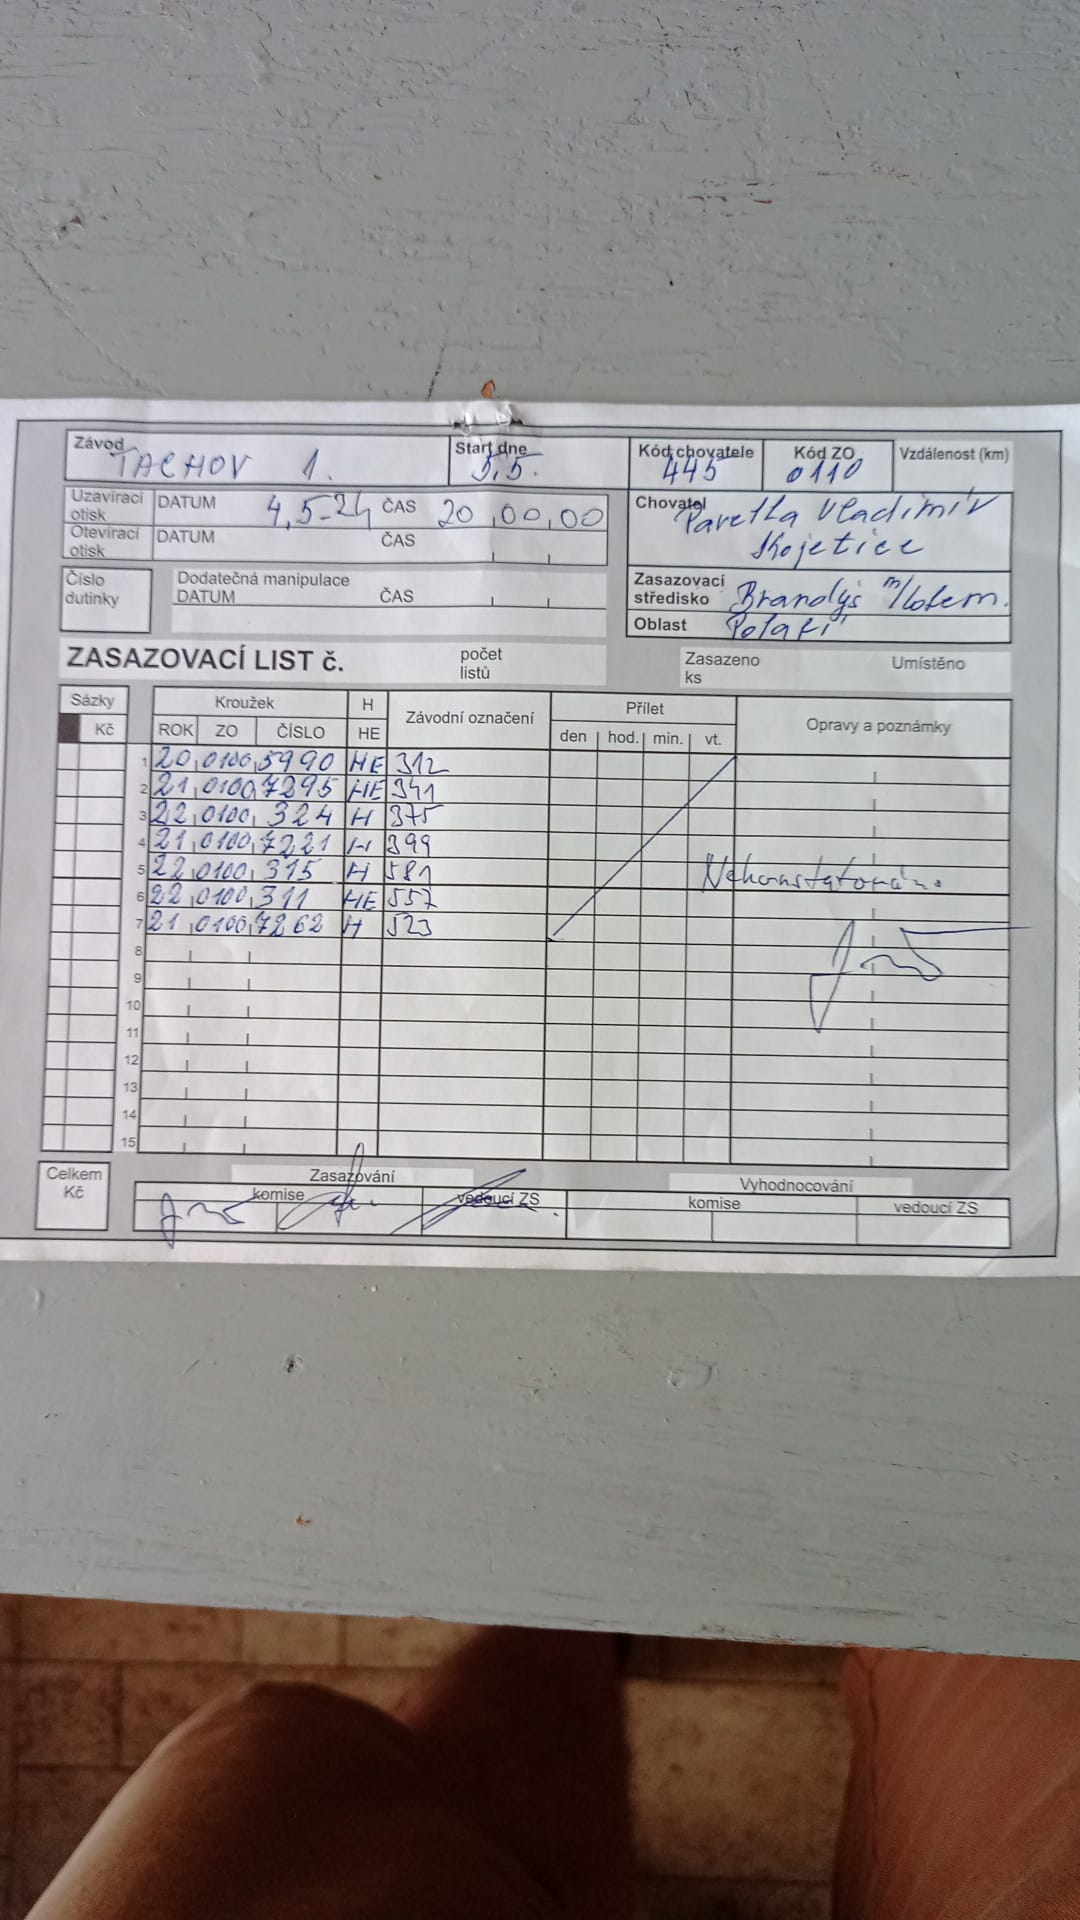 Závod TACHOV 1. Start dne 5.5. Kód chovatele 445 Kód ZO 0110 Vzdálenost (km)
Uzavírací otisk DATUM 4,5-24 ČAS 20,00,00
Otevírací otisk DATUM ČAS
Chovatel Pavelka Vladimír
Kojetice
Číslo dutinky
Dodatečná manipulace
DATUM ČAS
Zasazovací středisko Brandýs n/Labem.
Oblast Polabí
ZASAZOVACÍ LIST č. počet listů Zasazeno ks Umístěno
Sázky Kroužek H Závodní označení Přílet Opravy a poznámky
Kč ROK ZO ČÍSLO HE den hod. min. vt.
1 20,0100,5990 HE 312
2 21,0100,7295 HE 341
3 22,0100,324 H 375
4 21,0100,7221 H 399
5 22,0100,315 H 581 Nekonstatováno
6 22,0100,311 HE 557
7 21,0100,7262 H 523
8
9
10
11
12
13
14
15
Celkem Kč
Zasazování Vyhodnocování
komise vedoucí ZS komise vedoucí ZS